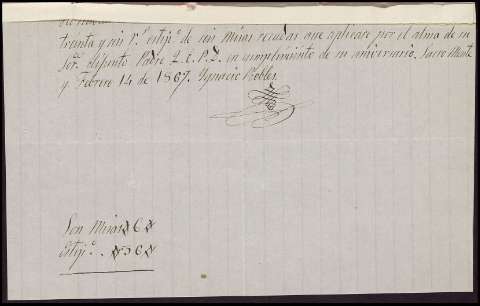 trenta y seis r.ˢ estip.º de seis Misas rezadas que aplicare por el alma de su
Sor. difunto Padre Q. E. P. D. en cumplimiento de su aniversario. Sacro Monte
y Febrero 14 de 1867. Ignacio Robles
Son Misas 6
Estip.º . 36